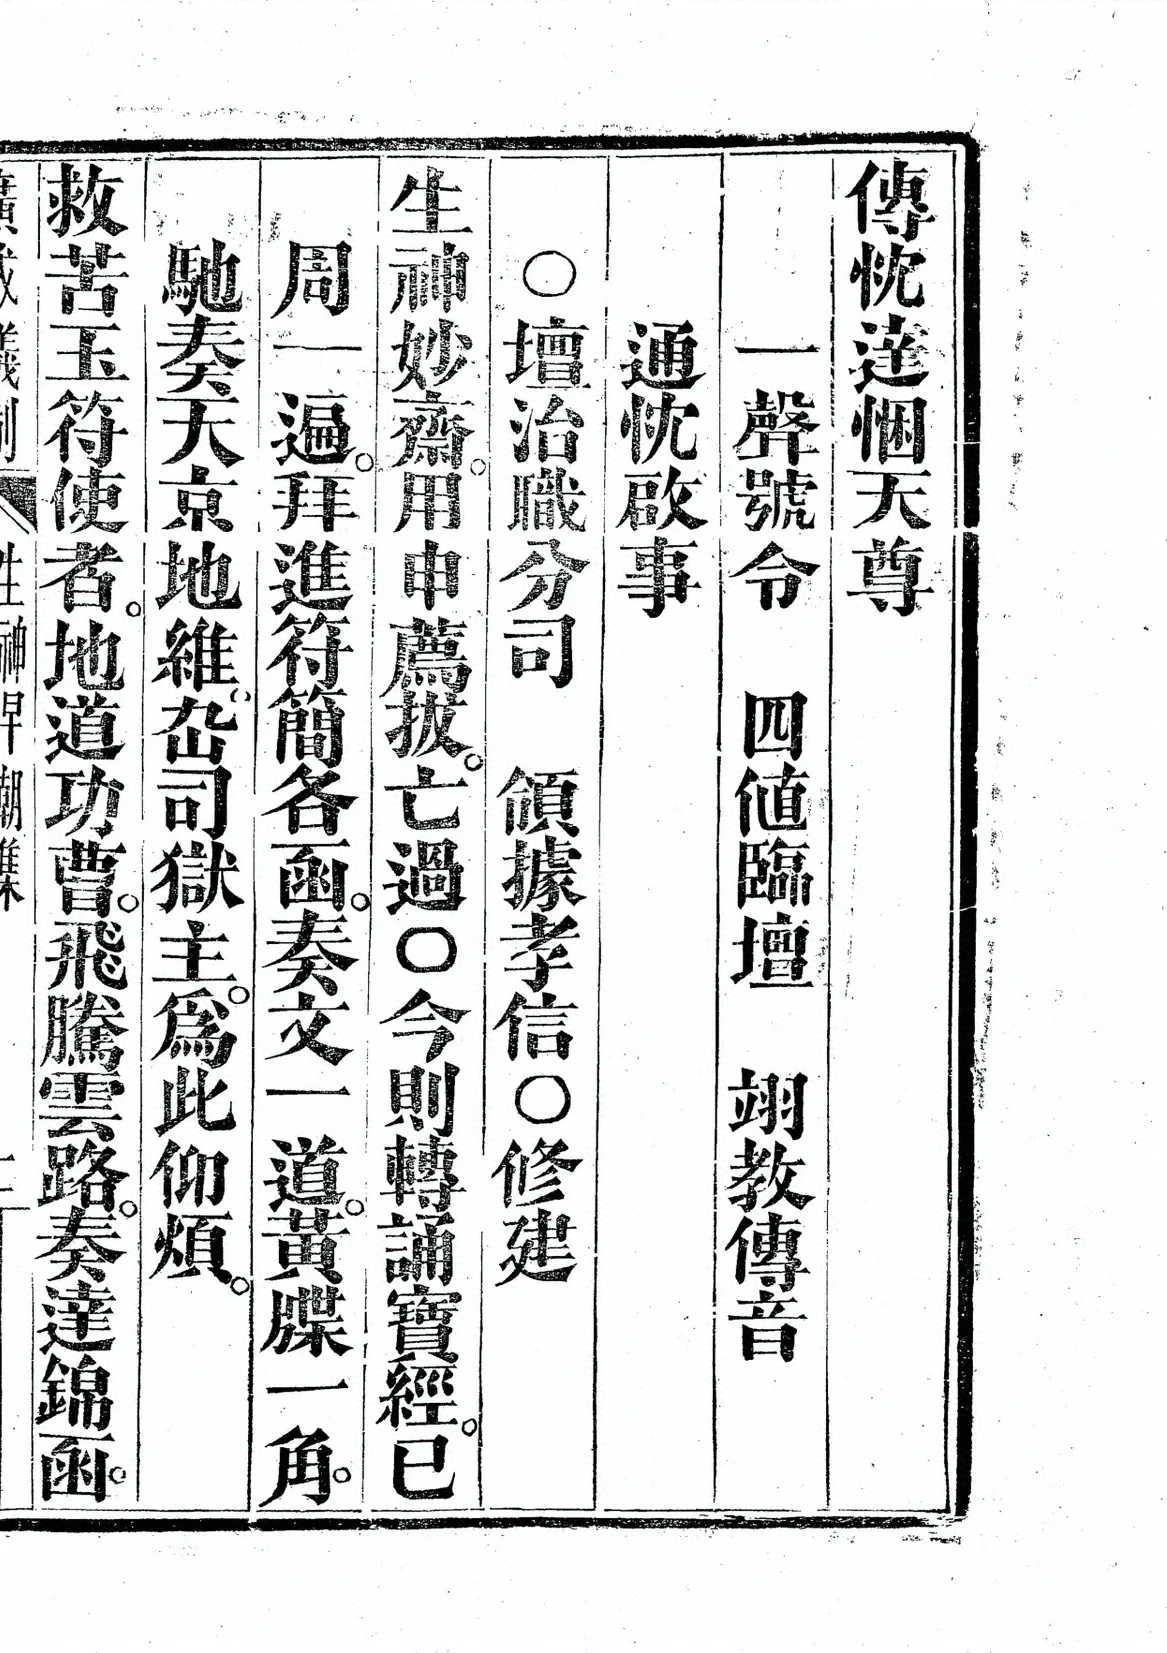 傳忱達悃天尊
一聲號令　四値臨壇　翊教傳音
通忱啟事
○壇治職分司　領據孝信○修建
生神妙齋。用申薦拔。亡過○今則轉誦寶經。已
周一遍。拜進符簡各函。奏文一道。黃牒一角。
馳奏天京地維。嵒司獄主。爲此仰煩。
救苦玉符使者。地道功曹。飛騰雲路。奏達錦函。
廣成儀制　生神早朝集